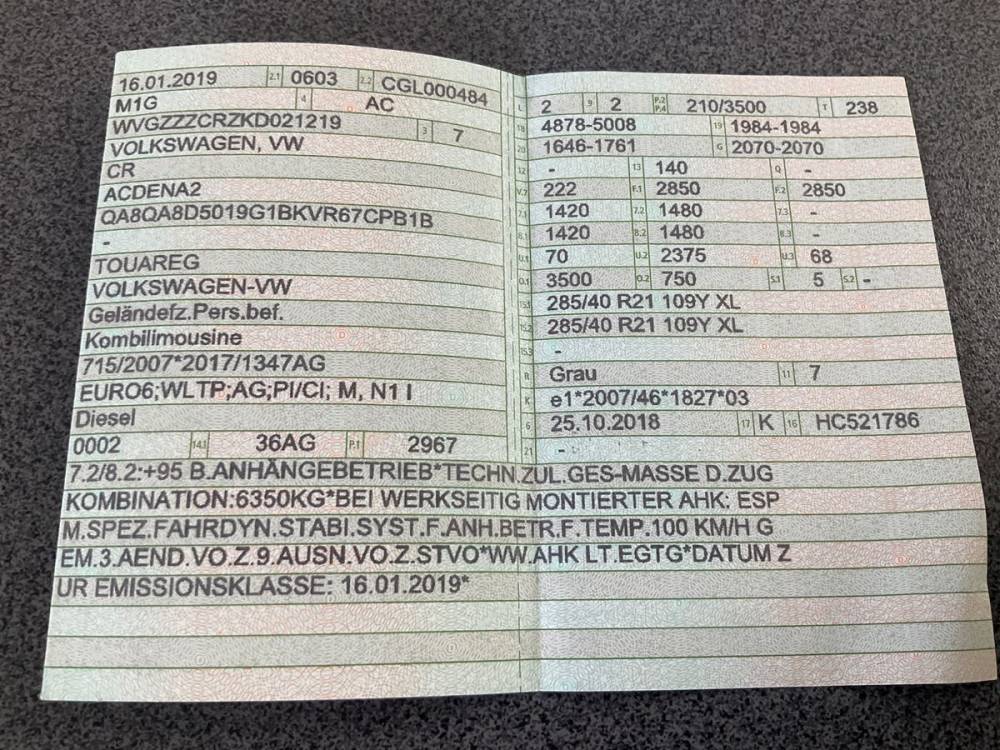 16.01.2019 2.1 0603 2.2 CGL000484
M1G 4 AC
WVGZZZCRZKD021219 3 7
VOLKSWAGEN, VW
CR
ACDENA2
QA8QA8D5019G1BKVR67CPB1B
-
TOUAREG
VOLKSWAGEN-VW
Geländefz.Pers.bef.
Kombilimousine
715/2007*2017/1347AG
EURO6;WLTP;AG;PI/CI; M, N1 I
Diesel
0002 14.1 36AG P.1 2967
L 2 9 2 P.2 P.4 210/3500 T 238
18 4878-5008 19 1984-1984
20 1646-1761 G 2070-2070
12 - 13 140 Q -
V.7 222 F.1 2850 F.2 2850
7.1 1420 7.2 1480 7.3 -
8.1 1420 8.2 1480 8.3 -
U.1 70 U.2 2375 U.3 68
O.1 3500 O.2 750 S.1 5 S.2 -
15.1 285/40 R21 109Y XL
15.2 285/40 R21 109Y XL
15.3 -
R Grau 11 7
K e1*2007/46*1827*03
6 25.10.2018 17 K 16 HC521786
21 -
7.2/8.2:+95 B.ANHÄNGEBETRIEB*TECHN.ZUL.GES-MASSE D.ZUG
KOMBINATION:6350KG*BEI WERKSEITIG MONTIERTER AHK: ESP
M.SPEZ.FAHRDYN.STABI.SYST.F.ANH.BETR.F.TEMP.100 KM/H G
EM.3.AEND.VO.Z.9.AUSN.VO.Z.STVO*WW.AHK LT.EGTG*DATUM Z
UR EMISSIONSKLASSE: 16.01.2019*